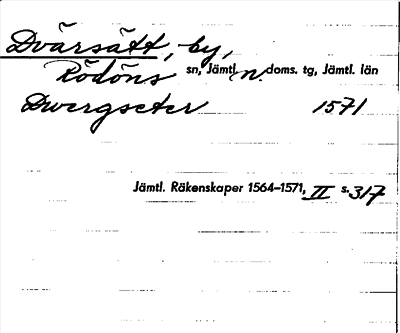 Dvärsätt, by,
Rödöns sn, Jämtl. n. doms. tg, Jämtl. län
Dwergseter 1571
Jämtl. Räkenskaper 1564–1571, II s. 317